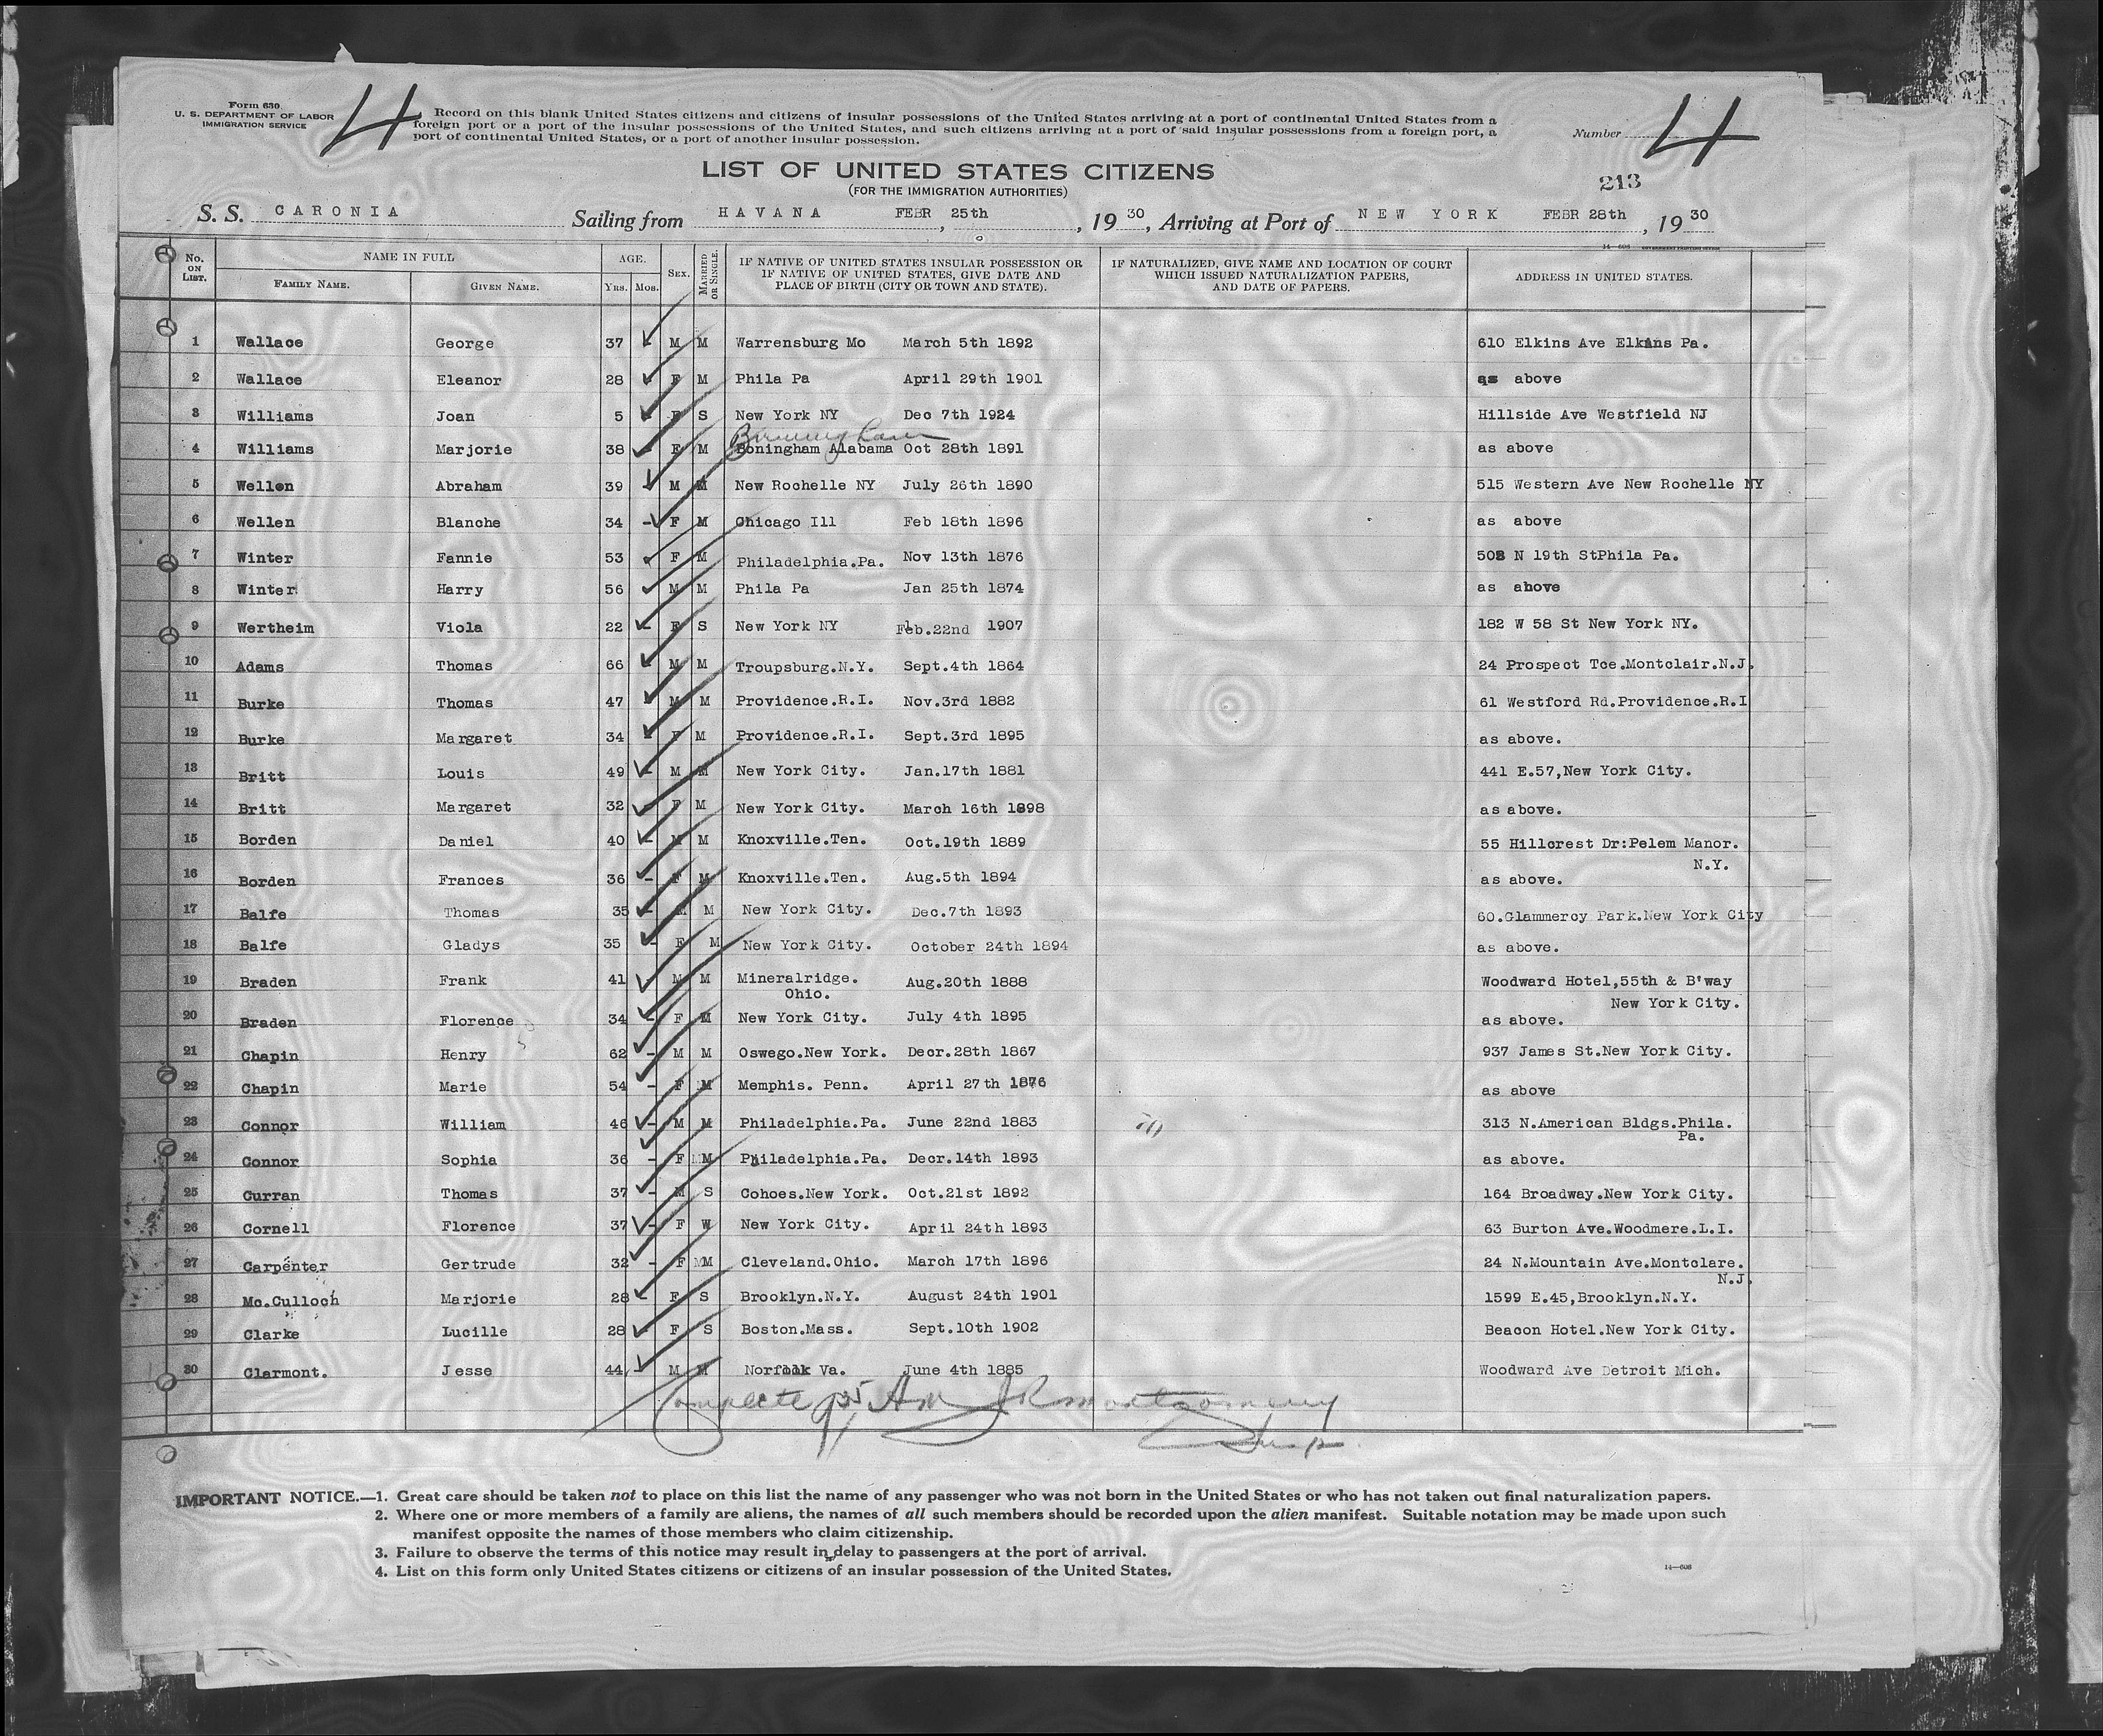 Form 630
U. S. DEPARTMENT OF LABOR
IMMIGRATION SERVICE
4
Record on this blank United States citizens and citizens of insular possessions of the United States arriving at a port of continental United States from a
foreign port or a port of the insular possessions of the United States, and such citizens arriving at a port of said insular possessions from a foreign port, a
port of continental United States, or a port of another insular possession.
Number 4
LIST OF UNITED STATES CITIZENS
(FOR THE IMMIGRATION AUTHORITIES)
213
S. S. CARONIA Sailing from HAVANA FEBR 25th, 1930, Arriving at Port of NEW YORK FEBR 28th, 1930
14-608 GOVERNMENT PRINTING OFFICE
No. ON LIST. NAME IN FULL FAMILY NAME. GIVEN NAME. AGE. YRS. MOS. SEX. MARRIED OR SINGLE. IF NATIVE OF UNITED STATES INSULAR POSSESSION OR IF NATIVE OF UNITED STATES, GIVE DATE AND PLACE OF BIRTH (CITY OR TOWN AND STATE). IF NATURALIZED, GIVE NAME AND LOCATION OF COURT WHICH ISSUED NATURALIZATION PAPERS, AND DATE OF PAPERS. ADDRESS IN UNITED STATES.
1 Wallace George 37 M M Warrensburg Mo March 5th 1892 610 Elkins Ave Elkins Pa.
2 Wallace Eleanor 28 F M Phila Pa April 29th 1901 as above
3 Williams Joan 5 F S New York NY Dec 7th 1924 Hillside Ave Westfield NJ
Birmingham
4 Williams Marjorie 38 F M Boningham Alabama Oct 28th 1891 as above
5 Wellen Abraham 39 M M New Rochelle NY July 26th 1890 515 Western Ave New Rochelle NY
6 Wellen Blanche 34 - F M Chicago Ill Feb 18th 1896 as above
7 Winter Fannie 53 F M Philadelphia.Pa. Nov 13th 1876 508 N 19th StPhila Pa.
8 Winter Harry 56 M M Phila Pa Jan 25th 1874 as above
9 Wertheim Viola 22 - F S New York NY Feb.22nd 1907 182 W 58 St New York NY.
10 Adams Thomas 66 - M M Troupsburg.N.Y. Sept.4th 1864 24 Prospect Tce.Montclair.N.J.
11 Burke Thomas 47 M M Providence.R.I. Nov.3rd 1882 61 Westford Rd.Providence.R.I
12 Burke Margaret 34 - F M Providence.R.I. Sept.3rd 1895 as above.
13 Britt Louis 49 - M M New York City. Jan.17th 1881 441 E.57,New York City.
14 Britt Margaret 32 - F M New York City. March 16th 1898 as above.
15 Borden Daniel 40 - M M Knoxville.Ten. Oct.19th 1889 55 Hillcrest Dr:Pelem Manor.
N.Y.
16 Borden Frances 36 - F M Knoxville.Ten. Aug.5th 1894 as above.
17 Balfe Thomas 35 - M M New York City. Dec.7th 1893 60.Glammercy Park.New York City
18 Balfe Gladys 35 - F M New York City. October 24th 1894 as above.
19 Braden Frank 41 M M Mineralridge. Aug.20th 1888 Woodward Hotel,55th & B'way
Ohio. New York City.
20 Braden Florence 34 - F M New York City. July 4th 1895 as above.
21 Chapin Henry 62 - M M Oswego.New York. Decr.28th 1867 937 James St.New York City.
22 Chapin Marie 54 - F M Memphis. Penn. April 27th 1876 as above
23 Connor William 46 - M M Philadelphia.Pa. June 22nd 1883 313 N.American Bldgs.Phila.
Pa.
24 Connor Sophia 36 - F M Philadelphia.Pa. Decr.14th 1893 as above.
25 Curran Thomas 37 - M S Cohoes.New York. Oct.21st 1892 164 Broadway.New York City.
26 Cornell Florence 37 - F W New York City. April 24th 1893 63 Burton Ave.Woodmere.L.I.
27 Carpenter Gertrude 32 - F M Cleveland.Ohio. March 17th 1896 24 N.Mountain Ave.Montclare.
N.J.
28 Mc.Culloch Marjorie 28 - F S Brooklyn.N.Y. August 24th 1901 1599 E.45,Brooklyn.N.Y.
29 Clarke Lucille 28 - F S Boston.Mass. Sept.10th 1902 Beacon Hotel.New York City.
30 Clarmont. Jesse 44 M M Norfolk Va. June 4th 1885 Woodward Ave Detroit Mich.
Complete JR Montgomery
Insp
IMPORTANT NOTICE.—1. Great care should be taken not to place on this list the name of any passenger who was not born in the United States or who has not taken out final naturalization papers.
2. Where one or more members of a family are aliens, the names of all such members should be recorded upon the alien manifest. Suitable notation may be made upon such
manifest opposite the names of those members who claim citizenship.
3. Failure to observe the terms of this notice may result in delay to passengers at the port of arrival.
4. List on this form only United States citizens or citizens of an insular possession of the United States.
14—608